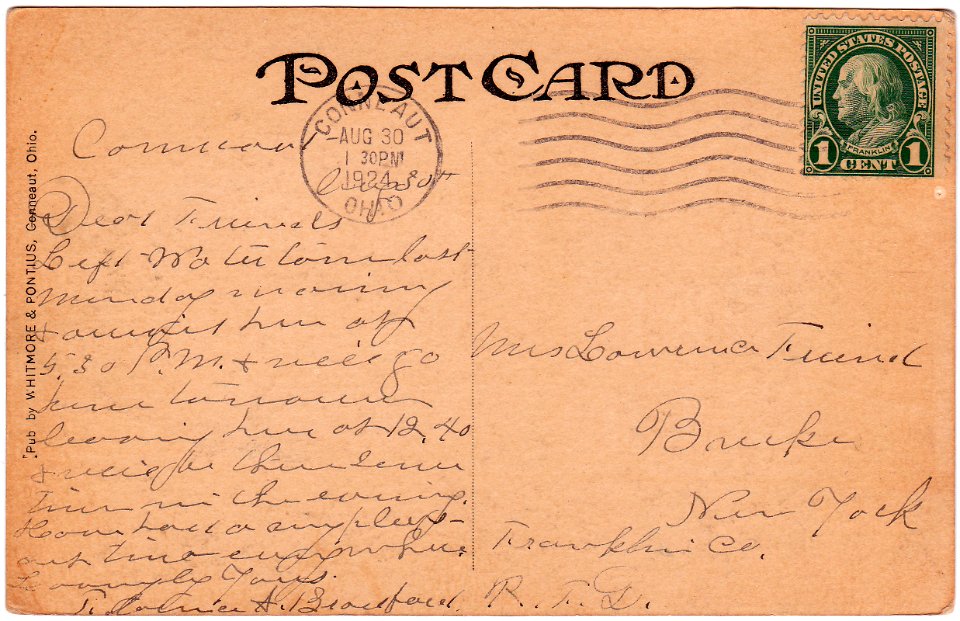 POST CARD
UNITED STATES POSTAGE
FRANKLIN
1 CENT 1
CONNEAUT
AUG 30
1 30 PM
1924
OHIO
Pub by WHITMORE & PONTIUS, Conneaut, Ohio.
Conneaut
Aug 30th
Dear Friends
Left Watertown last
Monday morning
& arrived here at
5.30 P.M. & will go
home tomorrow
leaving here at 12.40
& will be there some
time in the evening.
Have had a very pleas-
ant time everywhere.
Yours.
A. Bradford.
Mrs Lawrence Friend
Burke
New York
Franklin Co.
R. F. D.